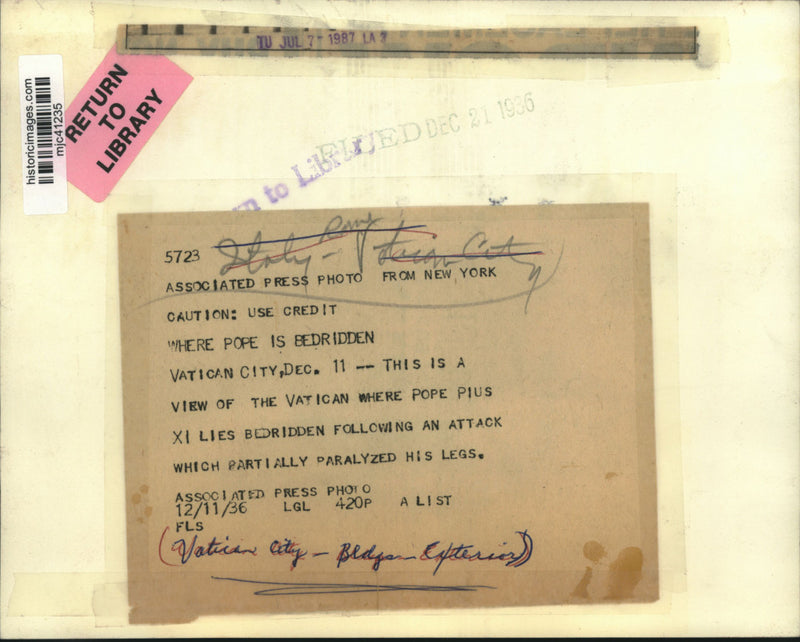 TU JUL 7 - 1987 LA
historicimages.com
mjc41235
RETURN
TO
LIBRARY
FILED DEC 21 1936
to Library
Rome
5723 Italy - Vatican City
ASSOCIATED PRESS PHOTO FROM NEW YORK
CAUTION: USE CREDIT
WHERE POPE IS BEDRIDDEN
VATICAN CITY,DEC. 11 -- THIS IS A
VIEW OF THE VATICAN WHERE POPE PIUS
XI LIES BEDRIDDEN FOLLOWING AN ATTACK
WHICH PARTIALLY PARALYZED HIS LEGS.
ASSOCIATED PRESS PHOTO
12/11/36 LGL 420P A LIST
FLS
(Vatican City - Bldgs - Exterior))